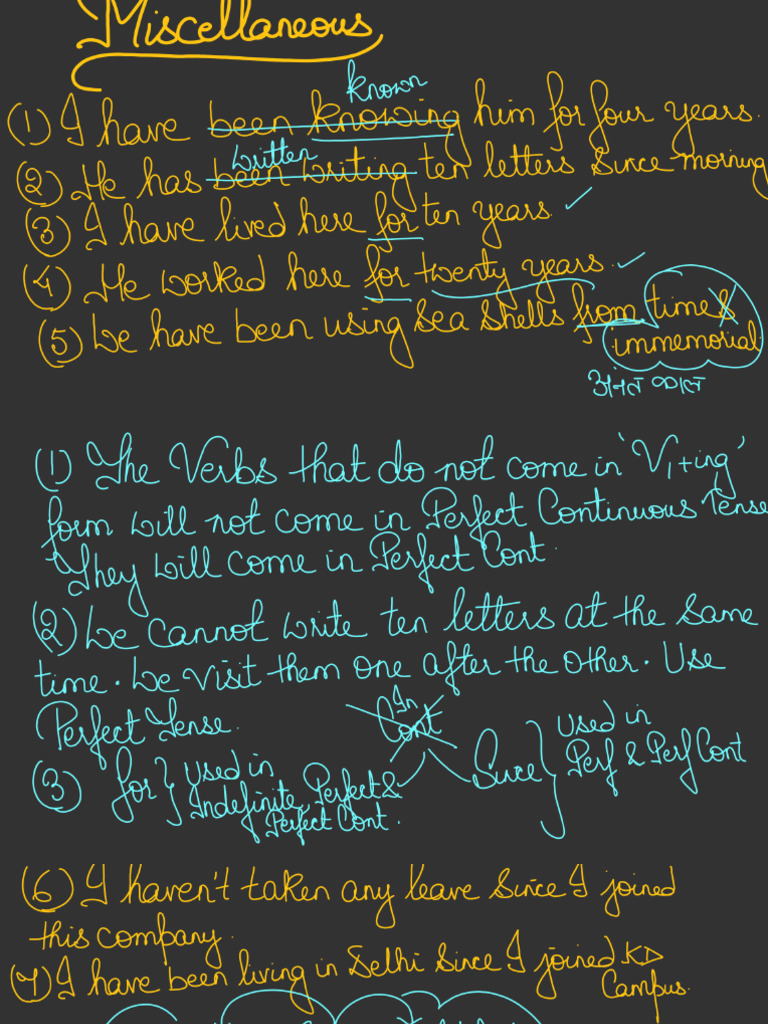 Miscellaneous
known
(1) I have been knowing him for four years.
written
(2) He has been writing ten letters since morning
(3) I have lived here for ten years. ✓
(4) He worked here for twenty years. ✓
(5) We have been using sea shells from times
immemorial
अनंत काल
(1) The Verbs that do not come in 'V₁+ing'
form will not come in Perfect Continuous Tense
They will come in Perfect Cont.
(2) We cannot write ten letters at the same
time. We visit them one after the other. Use
Perfect Tense.
In
Cont
(3) for } Used in
Indefinite, Perfect &
Perfect Cont.
Since } Used in
Perf & Perf Cont
(6) I haven't taken any leave since I joined
this company.
(7) I have been living in Delhi since I joined KD
Campus.